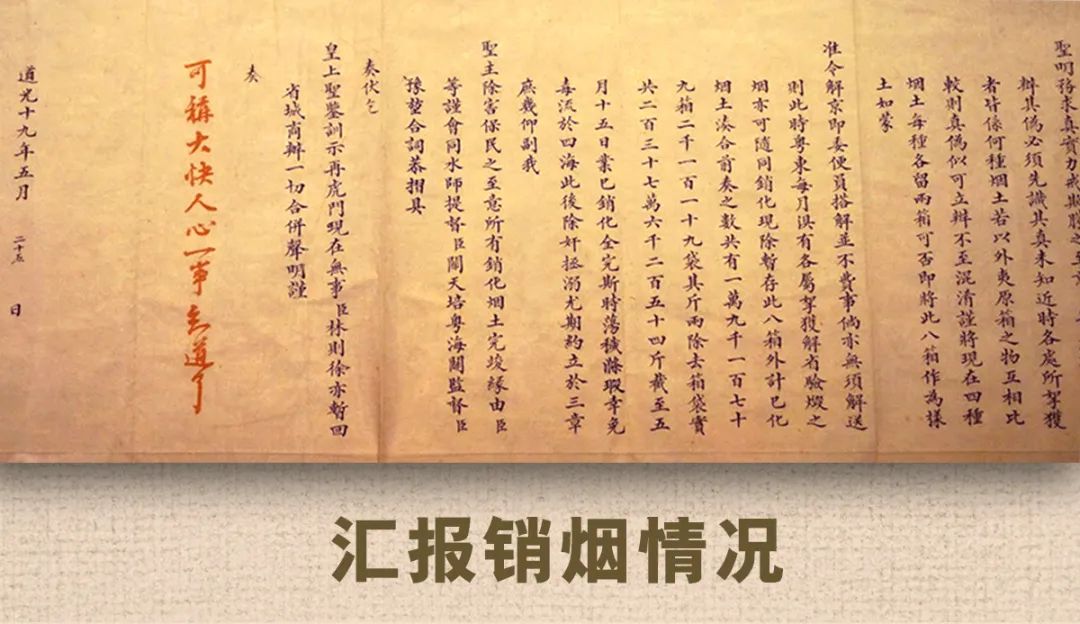 聖明務求真實力戒欺
辦其偽必須先識其真未知近時各處所拏獲
者皆係何種烟土若以外夷原箱之物互相比
較則真偽似可立辨不至混淆謹將現在四種
烟土每種各留兩箱可否即將此八箱作為樣
土如蒙
准令解京即委便員搭解並不費事倘亦無須解送
則此時粵東每月俱有各屬拏獲解省驗燬之
烟亦可隨同銷化現除暫存此八箱外計已化
烟土湊合前奏之數共有一萬九千一百七十
九箱二千一百一十九袋其斤兩除去箱袋實
共二百三十七萬六千二百五十四斤截至五
月十五日業已銷化全完斯時蕩穢滌瑕幸免
毒流於四海此後除奸拯溺尤期約立於三章
庶幾仰副我
聖主除害保民之至意所有銷化烟土完竣緣由臣
等謹會同水師提督臣關天培粵海關監督臣
豫堃合詞恭摺具
奏伏乞
皇上聖鑒訓示再虎門現在無事臣林則徐亦暫回
省城商辦一切合併聲明謹
奏
可稱大快人心一事知道了
道光十九年五月 二十五 日
汇报销烟情况